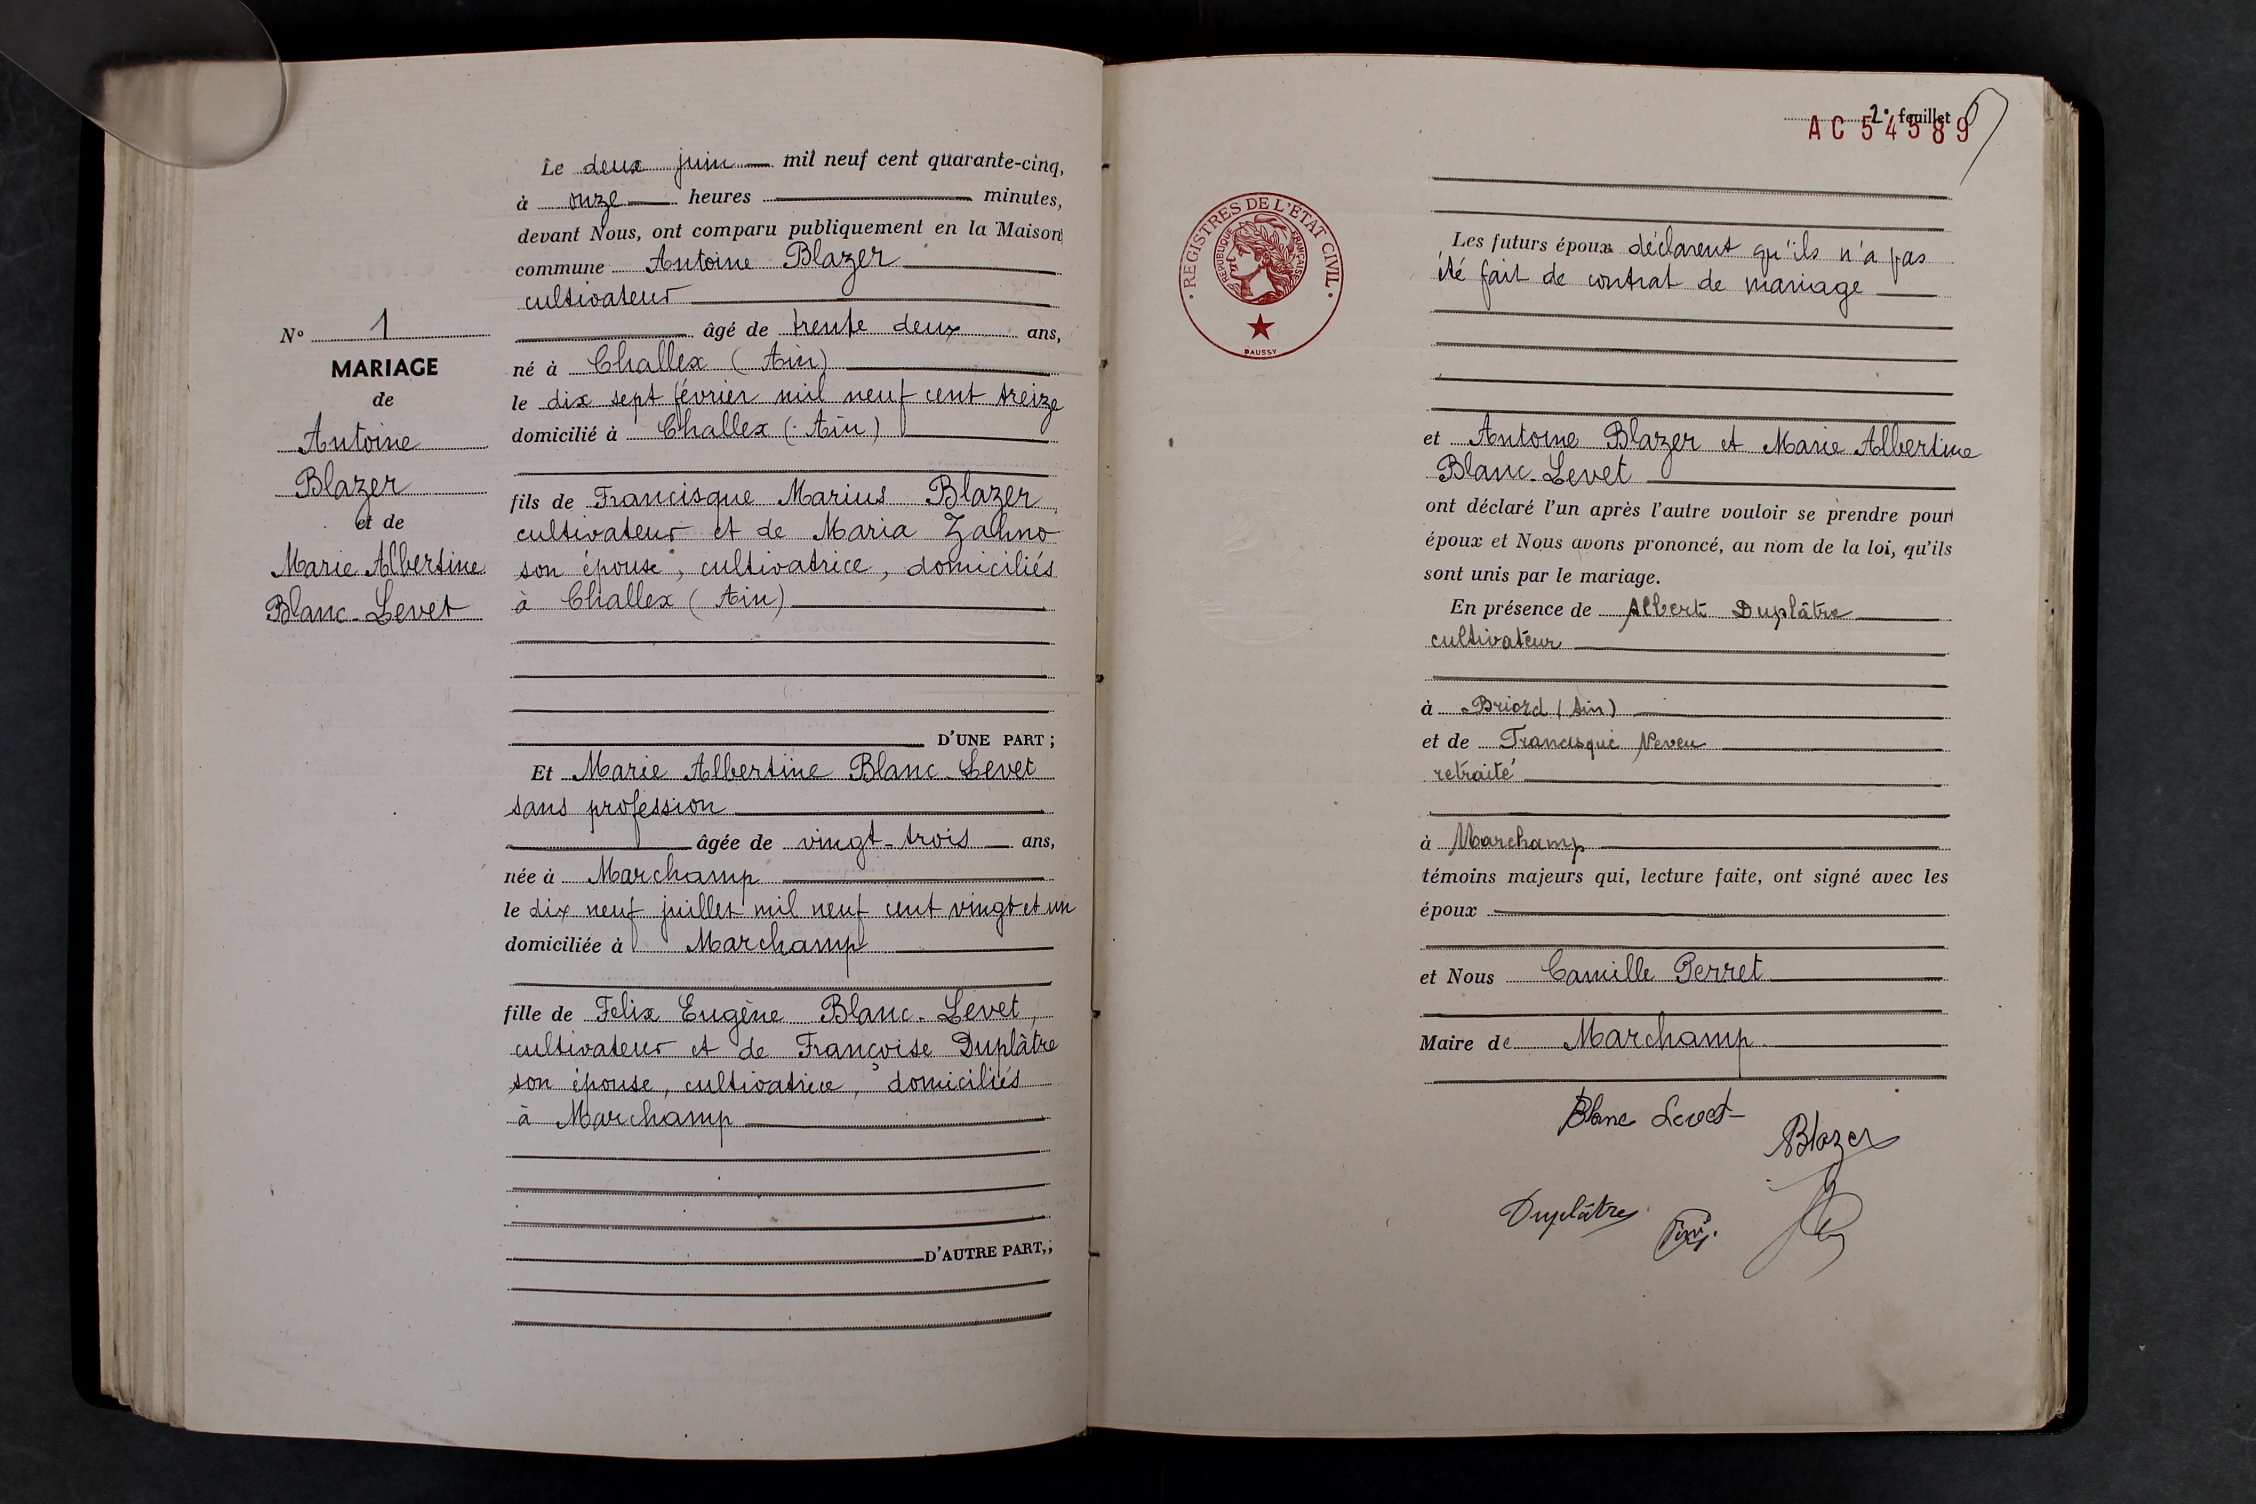 Le deux juin mil neuf cent quarante-cinq,
à onze heures minutes,
devant Nous, ont comparu publiquement en la Maison
commune Antoine Blazer
cultivateur
âgé de trente deux ans,
né à Challex (Ain)
le dix sept février mil neuf cent treize
domicilié à Challex (Ain)
fils de Francisque Marius Blazer
cultivateur et de Maria Zahno
son épouse, cultivatrice, domiciliés
à Challex (Ain)
D'UNE PART ;
Et Marie Albertine Blanc-Levet
sans profession
âgée de vingt-trois ans,
née à Marchamp
le dix neuf juillet mil neuf cent vingt et un
domiciliée à Marchamp
fille de Felix Eugène Blanc-Levet,
cultivateur et de Françoise Duplâtre
son épouse, cultivatrice, domiciliés
à Marchamp
D'AUTRE PART,;
N° 1
MARIAGE
de
Antoine
Blazer
et de
Marie Albertine
Blanc-Levet
2e feuillet
AC 54589
REGISTRES DE L'ETAT CIVIL
REPUBLIQUE FRANÇAISE
DAUSSY
Les futurs époux déclarent qu'ils n'a pas
été fait de contrat de mariage
et Antoine Blazer et Marie Albertine
Blanc-Levet
ont déclaré l'un après l'autre vouloir se prendre pour
époux et Nous avons prononcé, au nom de la loi, qu'ils
sont unis par le mariage.
En présence de Albert Duplâtre
cultivateur
à Briord (Ain)
et de Francisque Neveu
retraité
à Marchamp
témoins majeurs qui, lecture faite, ont signé avec les
époux
et Nous Camille Perret
Maire de Marchamp
Blanc Levet
Blazer
Duplâtre